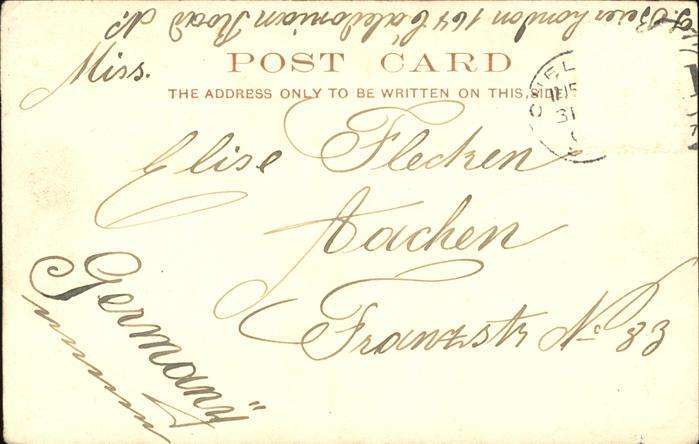 L. Beier London 164 Caledonian Road N.
Miss.
POST CARD
THE ADDRESS ONLY TO BE WRITTEN ON THIS SIDE
Elise Flecken
Aachen
Franzstr No 33
Germany"
31